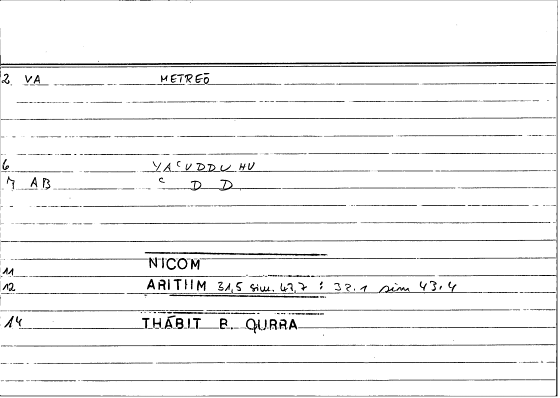 2 VA METREŌ
6 YAʿUDDUHU
7 AB ʿ D D
11 NICOM
12 ARITHM 31,5 sim. 43,7 : 32.1 sim 43.4
14 THĀBIT B. QURRA